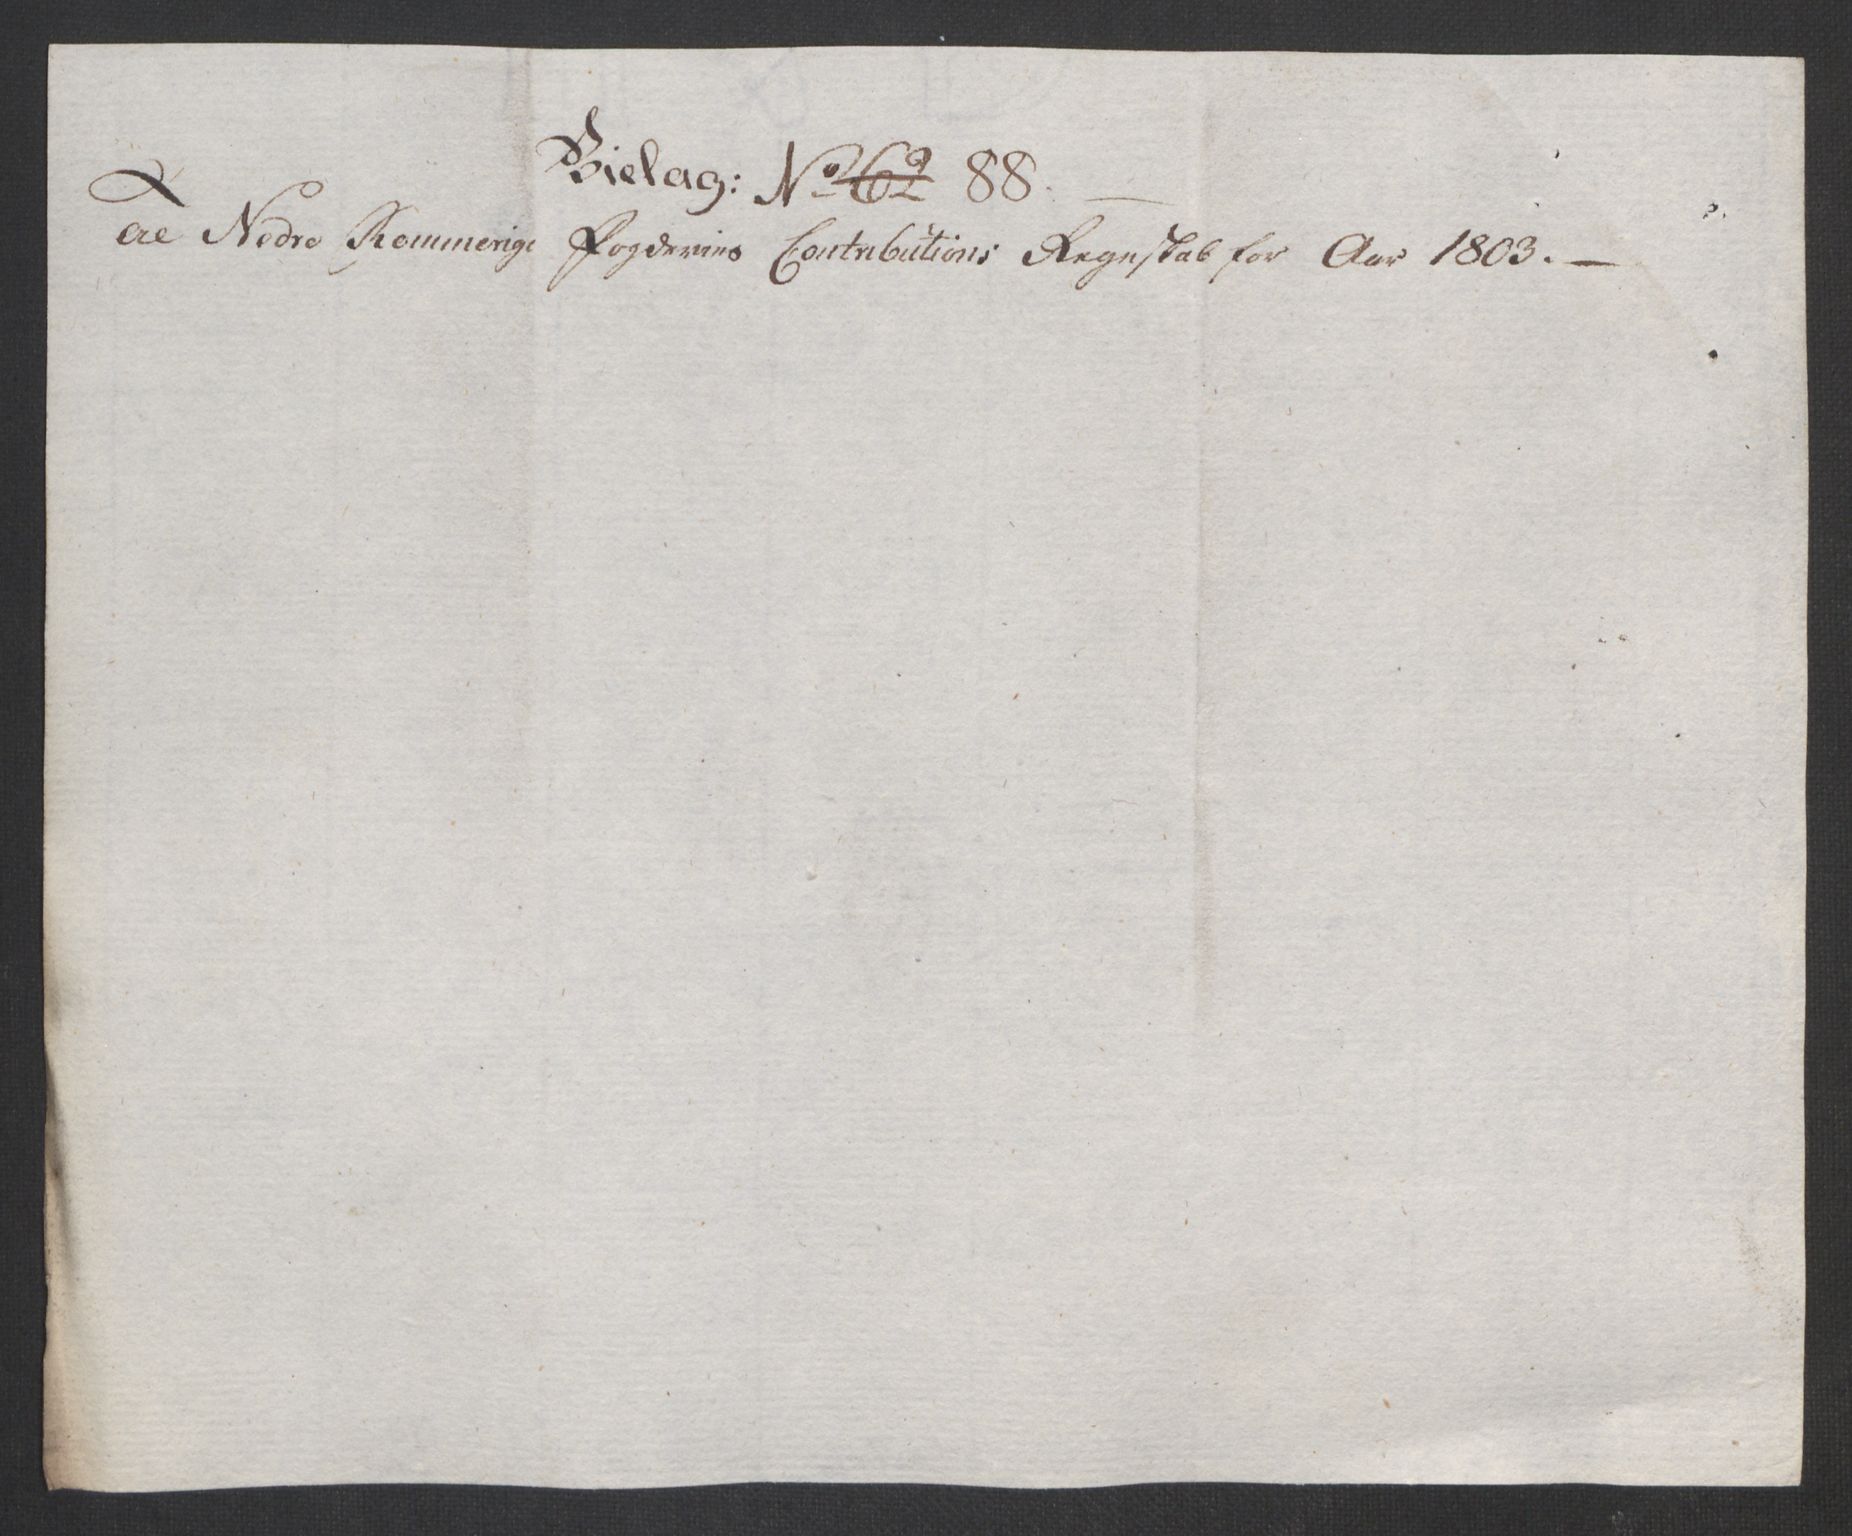 Bielag: No 62 88.
Til Nedre Rommerigs Fogderies Contributions Regnskab for Aar 1803.